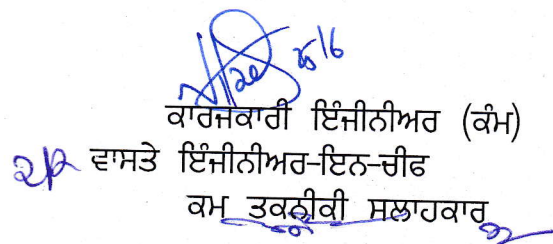 25/6
ਕਾਰਜਕਾਰੀ ਇੰਜੀਨੀਅਰ (ਕੰਮ)
ਵਾਸਤੇ ਇੰਜੀਨੀਅਰ-ਇਨ-ਚੀਫ
ਕਮ ਤਕਨੀਕੀ ਸਲਾਹਕਾਰ